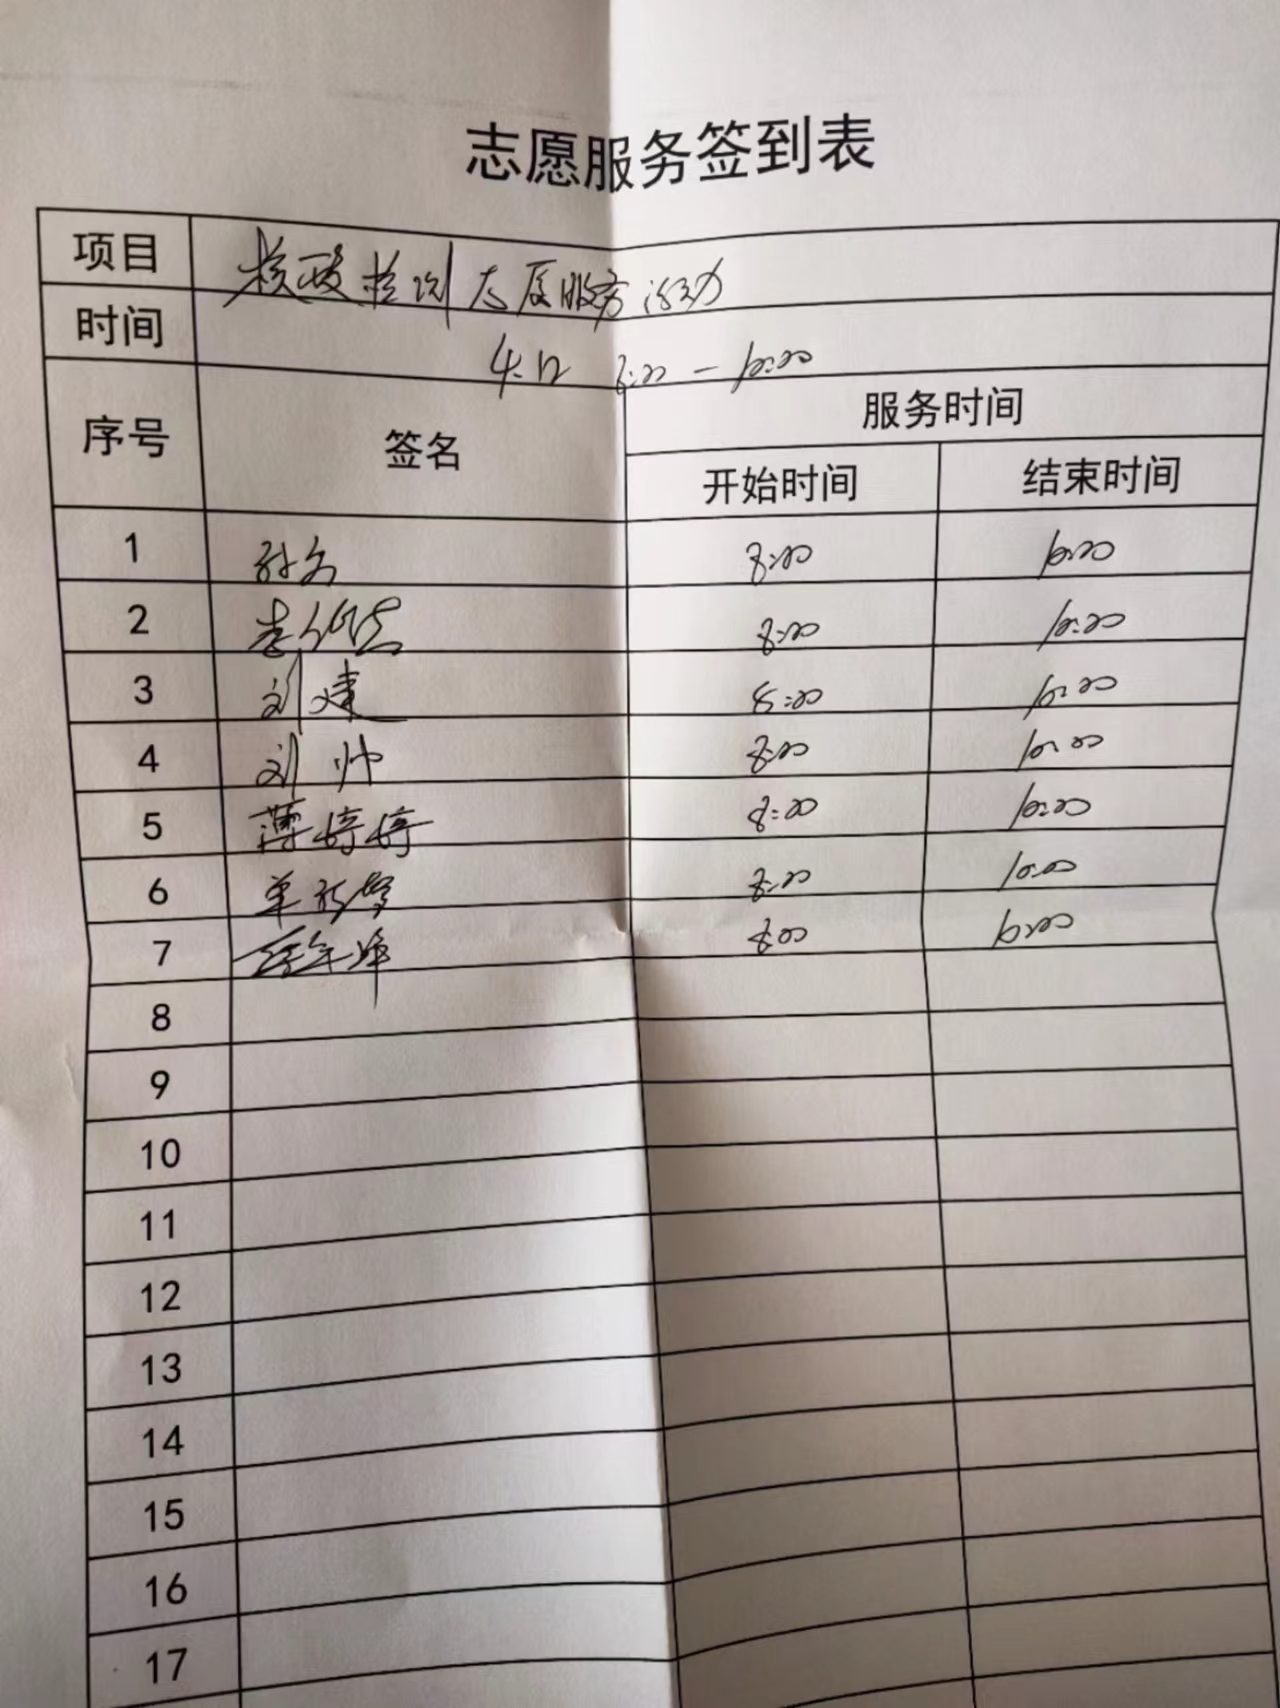 志愿服务签到表
项目 核酸检测志愿服务活动
时间 4.12 8:00-10:00
序号 签名 服务时间
开始时间 结束时间
1 8:00 10:00
2 李 8:00 10:00
3 刘建 8:00 10:00
4 刘帅 8:00 10:00
5 薄婷婷 8:00 10:00
6 单 8:00 10:00
7 8:00 10:00
8
9
10
11
12
13
14
15
16
17